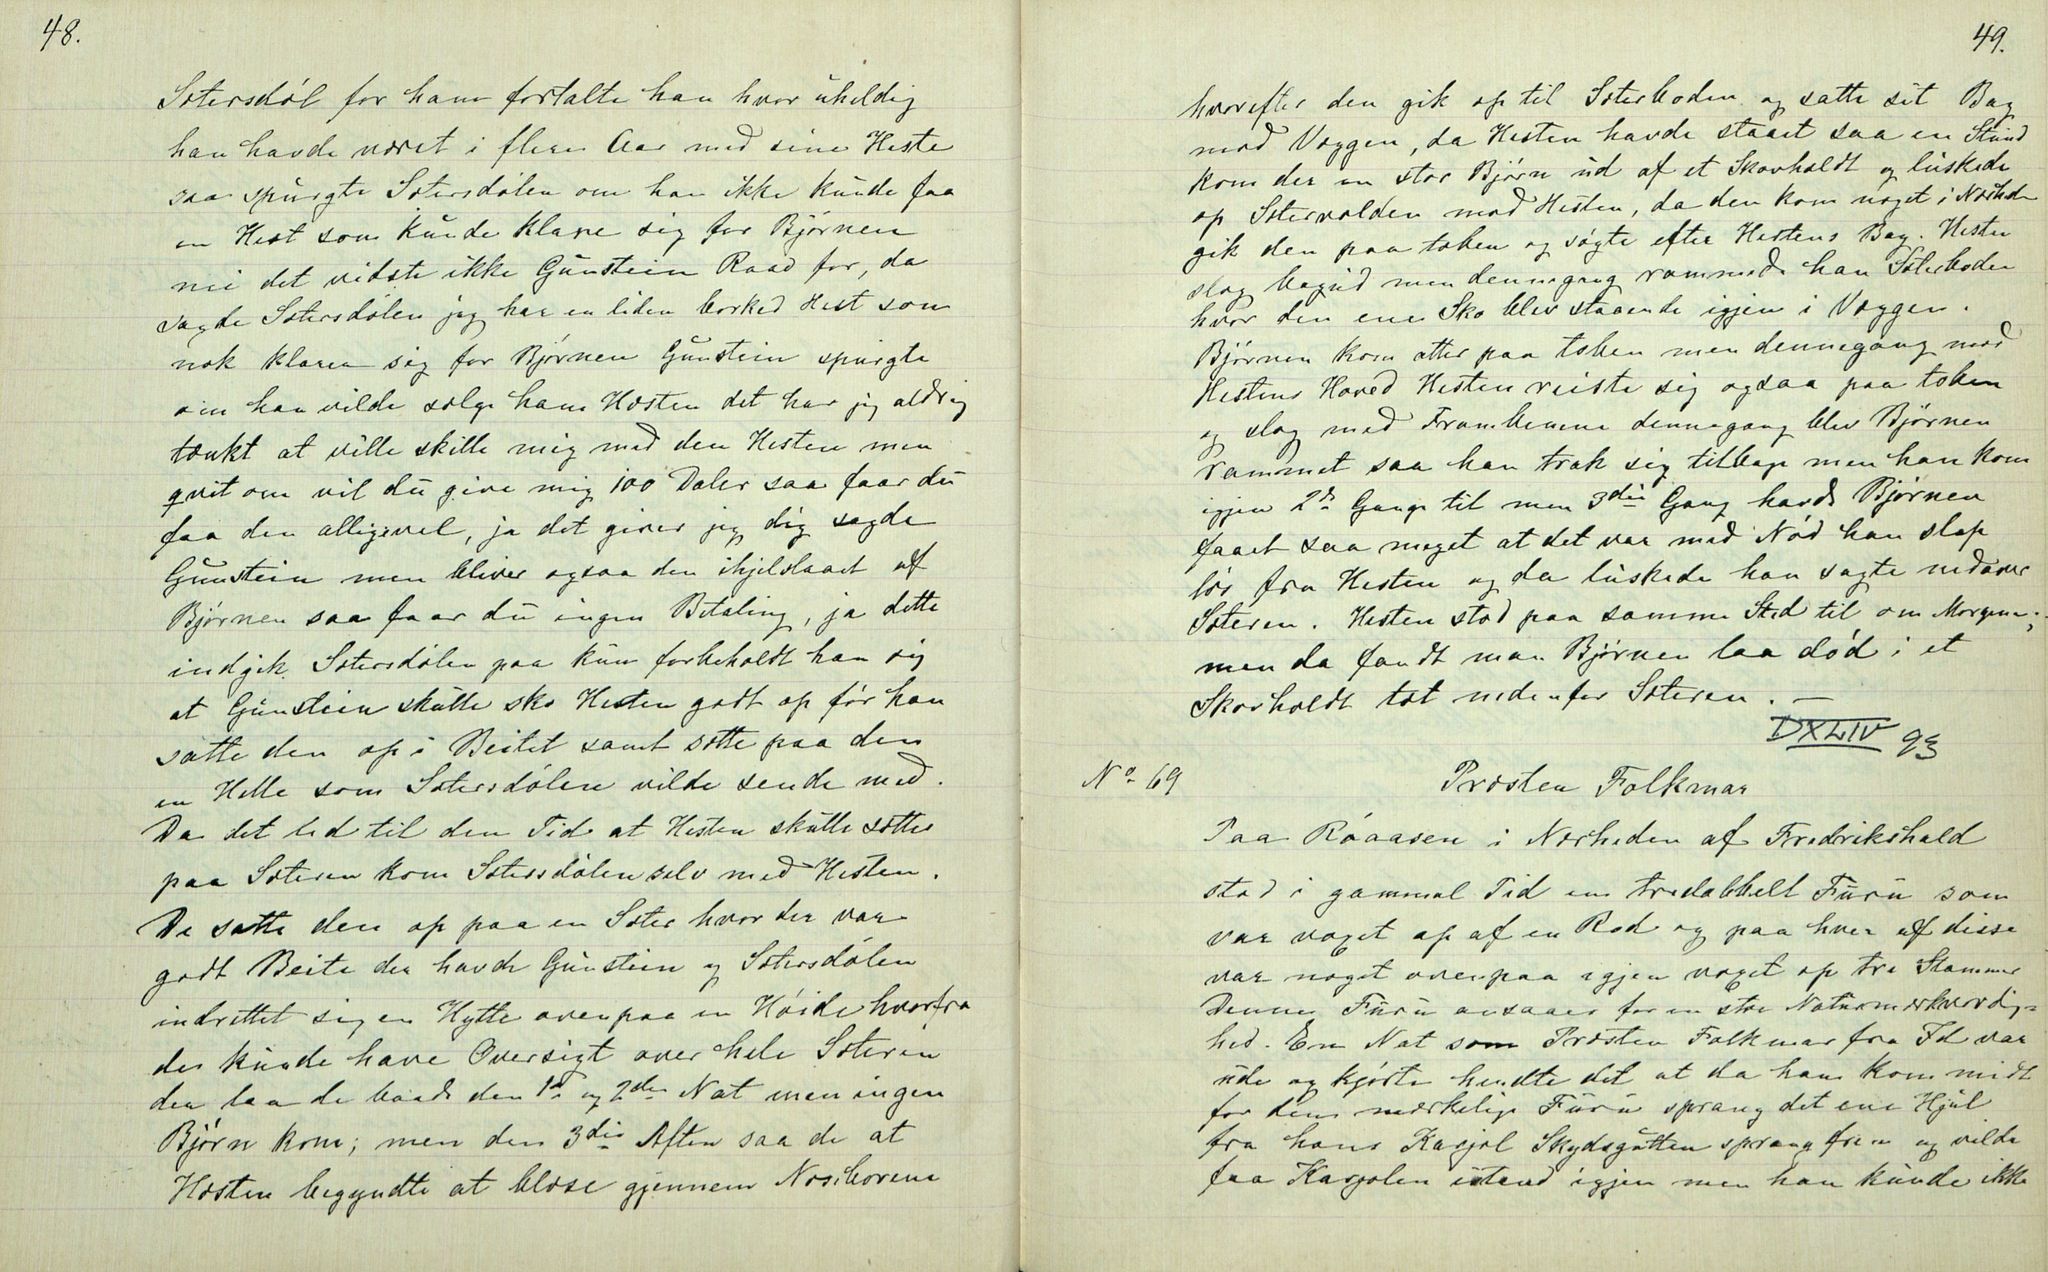 48.
Sætersdøl for ham fortalte han hvor uheldig
han havde været i flere Aar med sine Heste
saa spurgte Sætersdølen om han ikke kunde faa
en Hest som kunde klare sig for Bjørnen
nei det vidste ikke Gunstein Raad for, da
sagde Sætersdølen jeg har en liden borked Hest som
nok klarer sig for Bjørnen Gunstein spurgte
om han vilde sælge ham Hæsten det har jeg aldrig
tænkt at ville skille mig med den Hesten men
qvit om vil du give mig 100 Daler saa faar du
faa den alligevel, ja det giver jeg dig sagde
Gunstein men bliver ogsaa den ihjelslaaet af
Bjørnen saa faar du ingen Betaling, ja dette
indgik Sætersdølen paa kun forbeholdt han sig
at Gunstein skulle sko Hesten godt op før han
satte den op i Beitet samt sætte paa den
en Helle som Sætersdølen vilde sende med.
Da det led til den Tid at Hesten skulle sættes
paa Sæteren kom Sætersdølen selv med Hesten.
De satte den op paa en Sæter hvor der var
godt Beite der havde Gunstein og Sætersdølen
indrettet sig en Hytte ovenpaa en Høide hvorfra
de kunde have Oversigt over hele Sæteren
der laa de baade den 1ste og 2den Nat men ingen
Bjørn kom; men den 3die Aften saa de at
Hæsten begyndte at blæse gjennem Næseborene
49.
hvorefter den gik op til Sæterboden og satte sit Bag
mod Væggen, da Hesten havde staaet saa en Stund
kom der en stor Bjørn ud af et Skovholdt og luskede
op Sætervolden mod Hesten, da den kom noget i Nærheden
gik den paa toben og søgte efter Hestens Bag. Hesten
slog bagud men dennegang rammede han Sæterboden
hvor den ene Sko blev staaende igjen i Væggen.
Bjørnen kom atter paa toben men dennegang mod
Hestens Hoved Hesten reiste sig ogsaa paa toben
og slog med Frambenene dennegang blev Bjørnen
rammet saa han trak sig tilbage men han kom
igjen 2de Gange til men 3die Gang havde Bjørnen
faaet saa meget at det var med Nød han slap
løs fra Hesten og da luskede han sagte nedover
Sæteren. Hesten stod paa samme Sted til om Morgenen;
men da fandt man Bjørnen laa død i et
Skovholdt tæt nedenfor Sæteren. —
DXLIV 93
No 69 Præsten Folkmar
Paa Røaasen i Nærheden af Fredrikshald
stod i gammel Tid en tredobbelt Furu som
var voxet op af en Rod og paa hver af disse
var noget ovenpaa igjen voxet op tre Stammer
Denne Furu ansaaes for en stor Naturmærkværdig=
hed. En Nat som Præsten Folkmar fra Id var
ude og kjørte hendte det at da han kom midt
for den mærkelige Furu sprang det ene Hjul
fra hans Karjol Skydsgutten sprang frem og vilde
faa Karjolen istand igjen men han kunde ikke